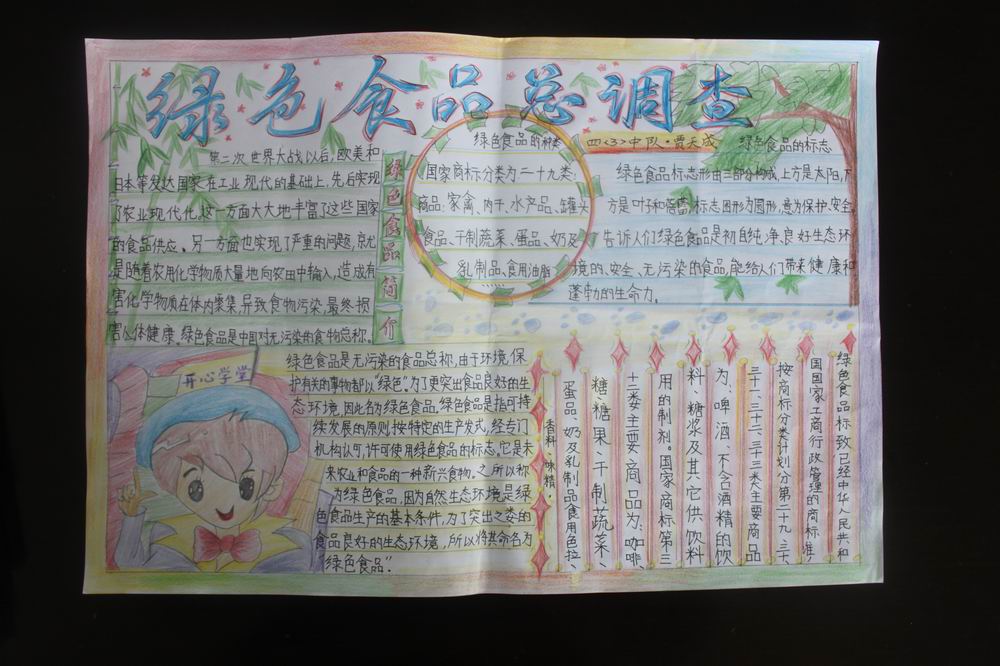 绿色食品总调查
第二次世界大战以后,欧美和
日本等发达国家在工业现代的基础上,先后实现
了农业现代化。这一方面大大地丰富了这些国家
的食品供应。另一方面也实现了严重的问题,就
是随着农用化学物质大量地向农田中输入,造成有
害化学物质在体内聚集,导致食物污染,最终损
害人体健康。绿色食品是中国对无污染的食物总称。
绿色食品简介
绿色食品的种类
国家商标分类为二十九类:
商品:家禽、肉干、水产品、罐头
食品、干制蔬菜、蛋品、奶及
乳制品、食用油脂
四<3>中队·贾天成
绿色食品的标志
绿色食品标志形由三部分构成,上方是太阳,下
方是叶子和蓓蕾,标志图形为圆形,意为保护、安全。
告诉人们绿色食品是初自纯净、良好生态环
境的、安全、无污染的食品,能给人们带来健康和
蓬勃的生命力。
开心学堂
绿色食品是无污染的食品总称,由于环境,保
护有关的事物都以“绿色”。为了更突出食品良好的生
态环境,因此名为绿色食品,绿色食品是指可持
续发展的原则,按特定的生产发式,经专门
机构认可,许可使用绿色食品的标志,它是未
来农业和食品的一种新兴食物。之所以称
为绿色食品,因为自然生态环境是绿
色食品生产的基本条件,为了突出之类的
食品良好的生态环境,所以将其命名为
绿色食品”。
绿色食品标致已经中华人民共和
国国家工商行政管理的商标准,
按商标分类计划分第二十九、三十、
三十一、三十二、三十三类主要商品
为:啤酒、不含酒精的饮
料、糖浆及其它供饮料
用的制剂。国家商标第三
十二类主要商品为:咖啡、
糖、糖果、干制蔬菜、
蛋品、奶及乳制品食用色拉、
香料、味精。